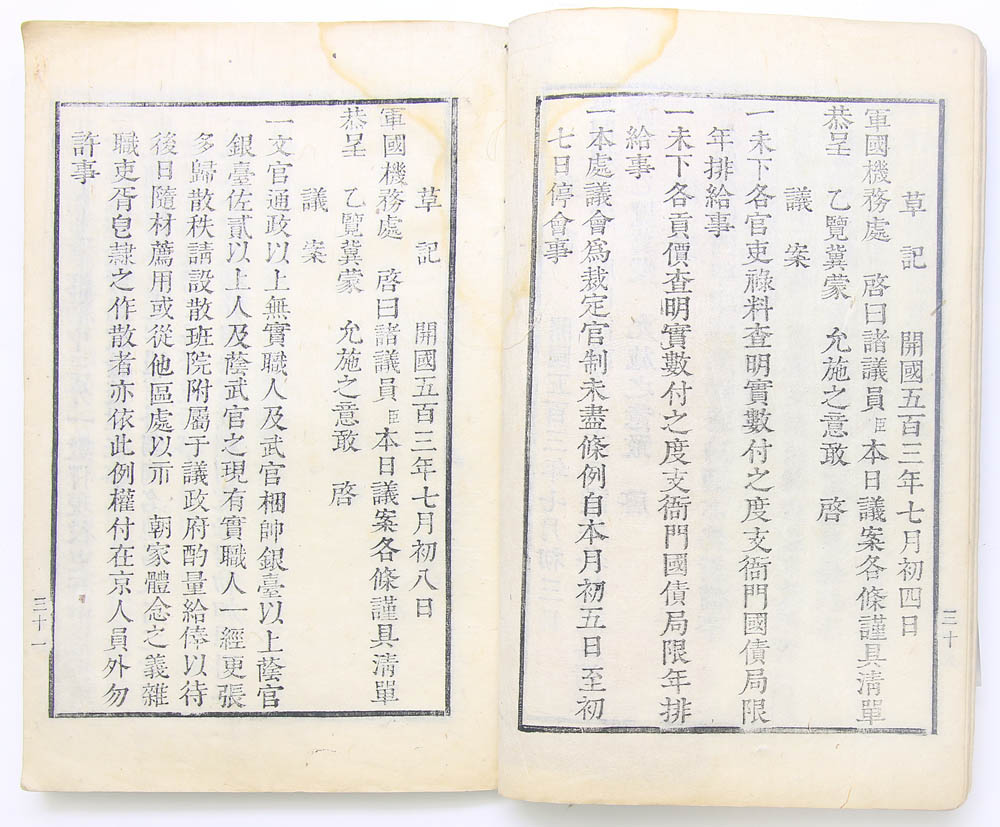 草記　開國五百三年七月初四日
軍國機務處　啓曰諸議員臣本日議案各條謹具淸單
恭呈　乙覽冀蒙　允施之意敢　啓
議案
一未下各官吏祿料查明實數付之度支衙門國債局限
年排給事
一未下各貢價查明實數付之度支衙門國債局限年排
給事
一本處議會爲裁定官制未盡條例自本月初五日至初
七日停會事
三十
草記　開國五百三年七月初八日
軍國機務處　啓曰諸議員臣本日議案各條謹具淸單
恭呈　乙覽冀蒙　允施之意敢　啓
議案
一文官通政以上無實職人及武官梱帥銀臺以上蔭官
銀臺佐貳以上人及蔭武官之現有實職人一經更張
多歸散秩請設散班院附屬于議政府酌量給俸以待
後日隨材薦用或從他區處以示　朝家體念之義雜
職吏胥皂隷之作散者亦依此例權付在京人員外勿
許事
三十一